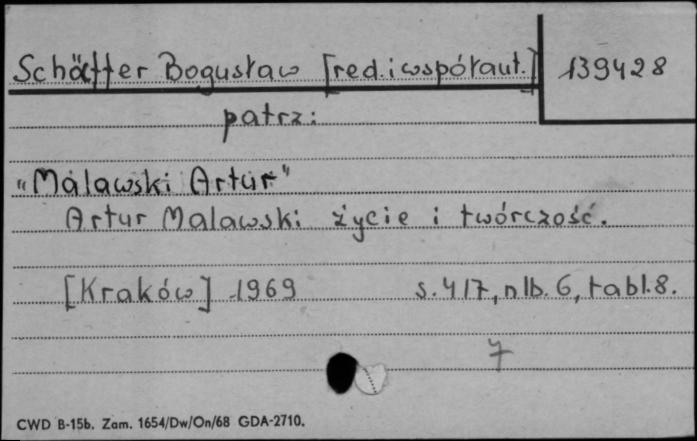 Schäffer Bogusław [red. i współaut.] 139428
patrz:
"Malawski Artur"
Artur Malawski życie i twórczość.
[Kraków] 1969 s. 417, nlb. 6, tabl. 8.
7
CWD B-15b. Zam. 1654/Dw/On/68 GDA-2710.